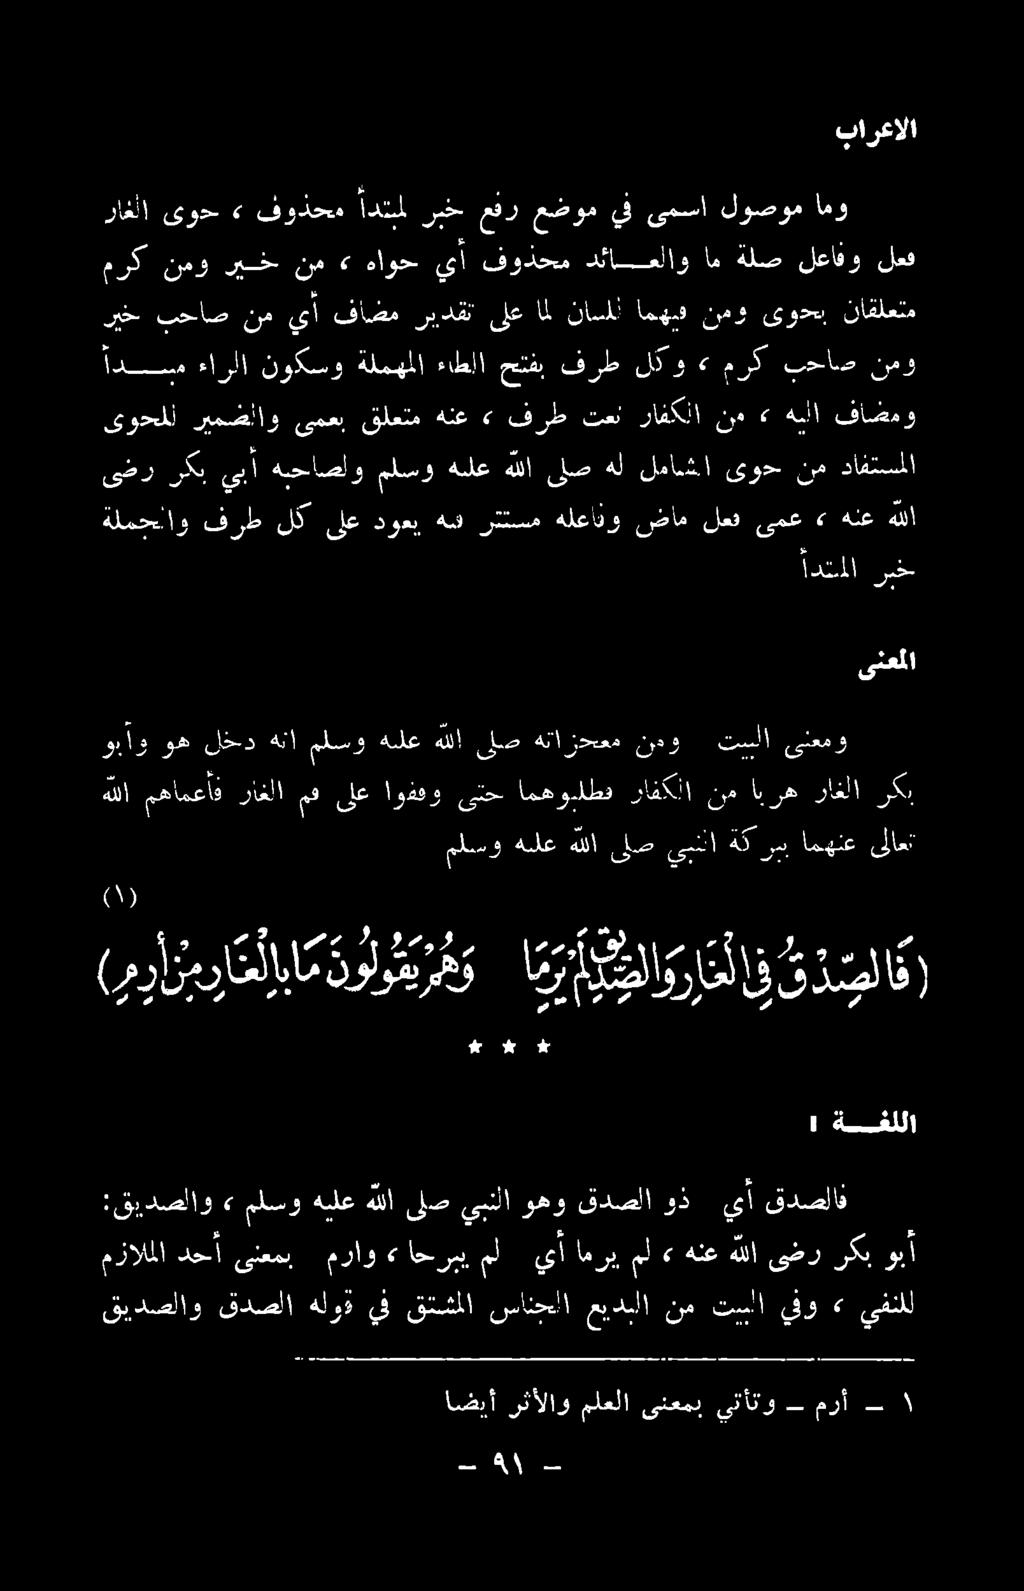 الاعراب
وما موصول اسمى في موضع رفع خبر لمبتدأ محذوف ، حوى الغار
فعل وفاعل صلة ما والعـــائد محذوف أي حواه ، من خـير ومن كرم
متعلقان بحوى ومن فيهما لبسان لما على تقدير مضاف أي من صاحب خير
ومن صاحب كرم ، وكل طرف بفتح الطاء المهملة وسكون الراء مبـــدأ
ومضاف اليه ، من الكفار نعت طرف ، عنه متعلق بعمى والضمير للحوى
المستفاد من حوى الشامل له صلى الله عليه وسلم ولصاحبه أبي بكر رضى
الله عنه ، عمى فعل ماض وفاعله مستتر فيه يعود على كل طرف والجملة
خبر المبتدأ
المعنى
ومعنى البيت ومن معجزاته صلى الله عليه وسلم انه دخل هو وأبو
بكر الغار هربا من الكفار فطلبوهما حتى وقفوا على فم الغار فأعماهم الله
تعالى عنهما ببركة النبي صلى الله عليه وسلم
(١)
(فَالصِّدْقُ فِي الْغَارِ وَالصِّدِّيقُ لَمْ يَرِمَا وَهُمْ يَقُولُونَ مَا بِالْغَارِ مِنْ أَرِمِ)
* * *
اللغـــة :
فالصدق أي ذو الصدق وهو النبي صلى الله عليه وسلم ، والصديق:
أبو بكر رضى الله عنه ، لم يرما أي لم يبرحا ، وارم بمعنى أحد الملازم
للنفي ، وفي البيت من البديع الجناس المشتق في قوله الصدق والصديق
١ – أرم – وتأتي بمعنى العلم والأثر أيضا
– ٩١ –